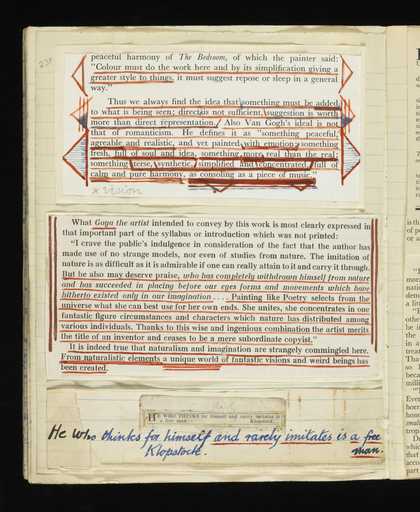 peaceful harmony of The Bedroom, of which the painter said:
"Colour must do the work here and by its simplification giving a
greater style to things, it must suggest repose or sleep in a general
way."
Thus we always find the idea that something must be added
to what is being seen; direct is not sufficient, suggestion is worth
more than direct representation. Also Van Gogh's ideal is not
that of romanticism. He defines it as "something peaceful,
agreeable and realistic, and yet painted with emotion; something
fresh, full of soul and idea, something more real than the real;
something terse, synthetic, simplified and concentrated; full of
calm and pure harmony, as consoling as a piece of music."
x vision
What Goya the artist intended to convey by this work is most clearly expressed in
that important part of the syllabus or introduction which was not printed:
"I crave the public's indulgence in consideration of the fact that the author has
made use of no strange models, nor even of studies from nature. The imitation of
nature is as difficult as it is admirable if one can really attain to it and carry it through.
But he also may deserve praise, who has completely withdrawn himself from nature
and has succeeded in placing before our eyes forms and movements which have
hitherto existed only in our imagination . . . . Painting like Poetry selects from the
universe what she can best use for her own ends. She unites, she concentrates in one
fantastic figure circumstances and characters which nature has distributed among
various individuals. Thanks to this wise and ingenious combination the artist merits
the title of an inventor and ceases to be a mere subordinate copyist."
It is indeed true that naturalism and imagination are strangely commingled here.
From naturalistic elements a unique world of fantastic visions and weird beings has
been created.
He who thinks for himself and rarely imitates is a free man
Klopstock.
He who thinks for himself and rarely imitates is a free
Klopstock. man.